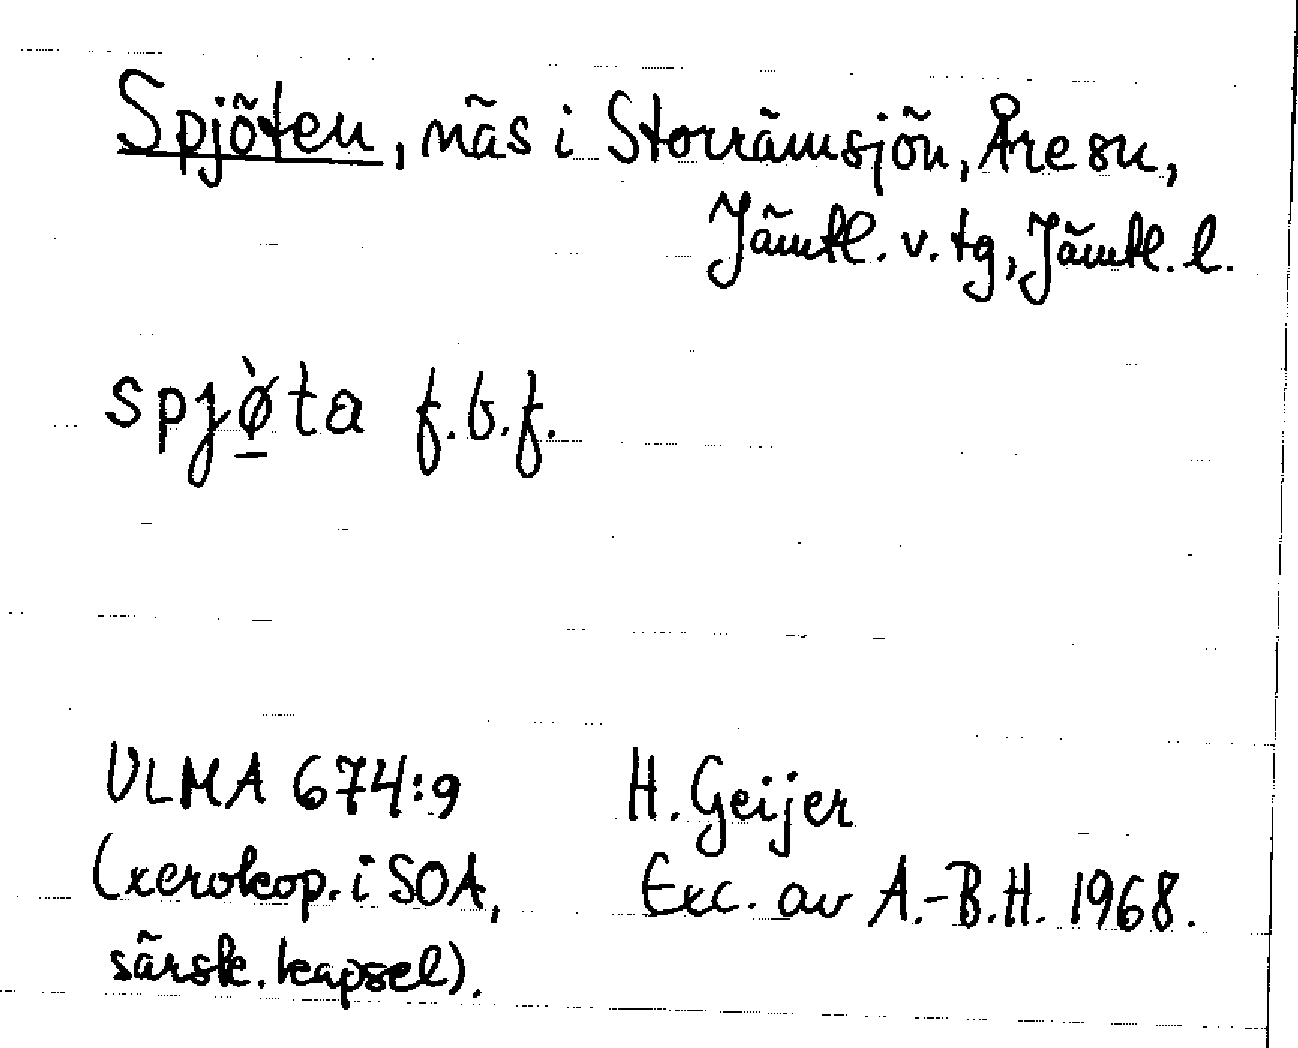 Spjöten, näs i Storrämsjön, Åre sn,
Jämtl. v. tg, Jämtl. l.
spjø̠̀ta f.b.f.
ULMA 674:9
(xerokop. i SOA,
särsk. kapsel).
H. Geijer
Exc. av A.-B.H. 1968.